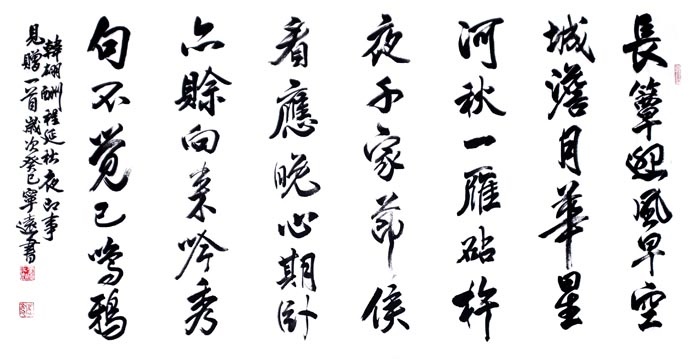 長簟迎風早空
城澹月華星
河秋一雁砧杵
夜千家節候
看應晚心期卧
亦賒向来吟秀
句不覺已鳴鴉
韓翃酬程延秋夜即事
見贈一首歲次癸巳寧遠書